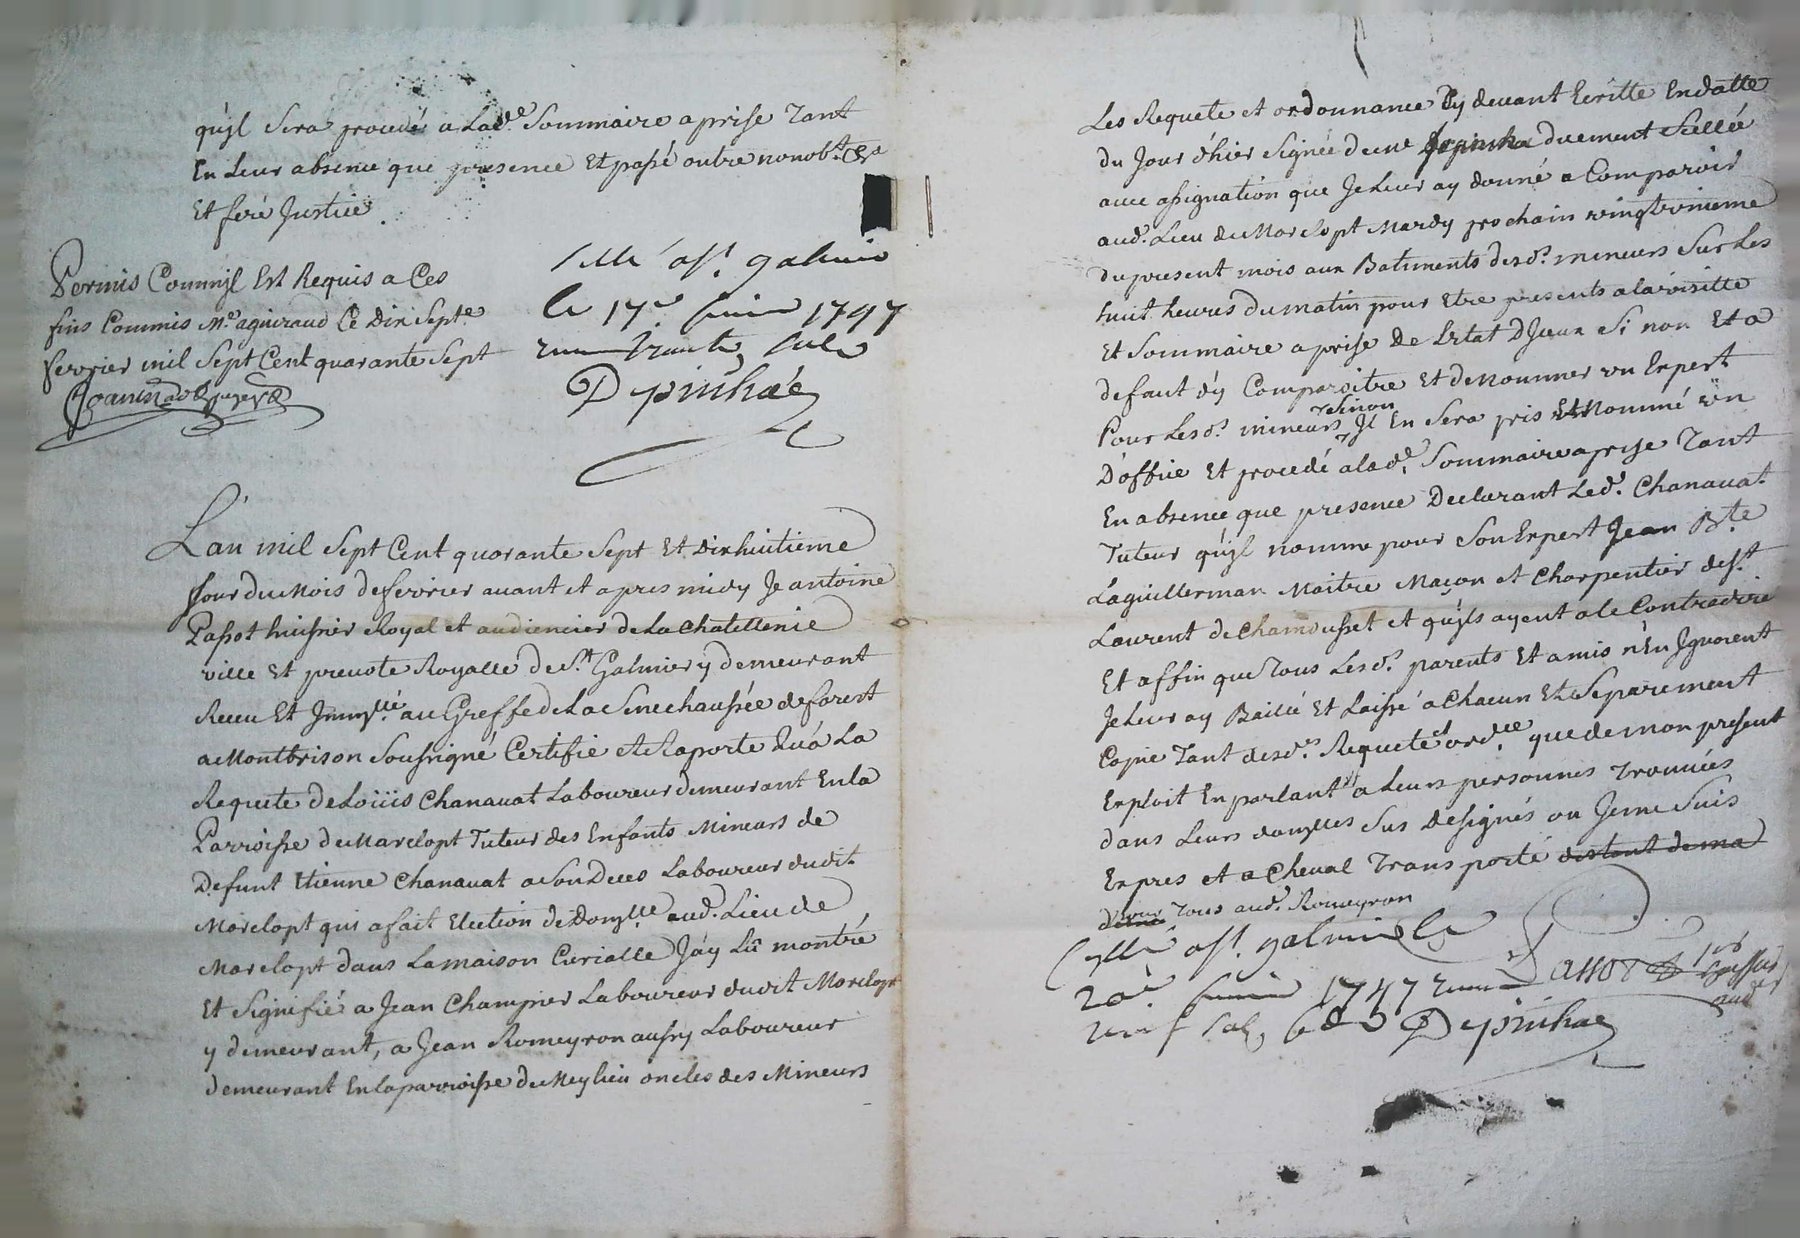 qu'jl Sera procedé a Lad.e Sommaire aprise Tant
En Leur absence que presence Et passé outre nonobt. &a
Et feré Justice
Permis Commjl Est Requis a Ces
fins Commis M.e aguiraud Ce Dix Sept.e
fevrier mil Sept Cent quarante Sept
Scellé a St. galmier
le 17.e 1747
Depinhac
L'an mil Sept Cent quarante Sept Et Dixhuitieme
Jour du Mois de fevrier avant et apres midy Je antoine
Passot huissier Royal et audiencier de La Chatellenie
ville Et prevoté Royalle de S.t Galmier y demeurant
Receu Et Jmm.llé au Greffe de La Senechaussée de forest
a Montbrison Soussigné Certifie et Raporte Qu'a La
Requete de Loüis Chanavat Laboureur demeurant En la
Parroisse de Marclopt Tuteur des Enfants Mineurs de
Defunt Etienne Chanavat a Son Deces Laboureur dudit
Marclopt qui a fait Election de Domylle aud. Lieu de
Marclopt dans La maison Curialle J'ay Lü montré
Et Signifié a Jean Champier Laboureur dudit Marclopt
y demeurant, a Jean Romeyron aussy Laboureur
demeurant En la parroisse de Meylieu oncles des Mineurs
Les Requete et ordonnance Cy devant Ecritte En datte
du Jour d'hier Signée deme Depinhac duement Scellée
avec assignation que Je Leur ay donné a Comparoir
aud. Lieu de Marclopt Mardy prochain vingt unieme
du present mois aux Batiments desd.s mineurs Sur Les
huit heures du matin pour Etre presents a la visitte
Et Sommaire aprise De L'etat D'Jceux Si non Et a
defaut d'y Comparoitre Et de Nommer un Expert
Sinon
Pour Lesd.s mineurs Jl En Sera pris Et Nommé un
D'office Et procedé a lad.e Sommaire aprise Tant
En absence que presence Declarant Led. Chanavat
Tuteur qu'jl nomme pour Son Expert Jean B.te
Laguillerman Maitre Maçon et Charpentier de St.
Laurent de Chamousset et qu'jls ayent a le Contredire
Et affin que Tous Lesd.s parents Et amis n'En Jgnorent
Je Leur ay Baillé Et Laissé a Chacun Et Separement
Copie Tant desd.s Requete et ord.ce que de mon present
Exploit En parlant a Leurs personnes Trouvées
dans Leurs domylles Sus Designés ou Je me Suis
Expres et a Cheval Transporté distant de ma
Tous aud. Romeyron
Scellé a St. galmier le
20.e 1747
neuf Sols 6 d Depinhac
Passot